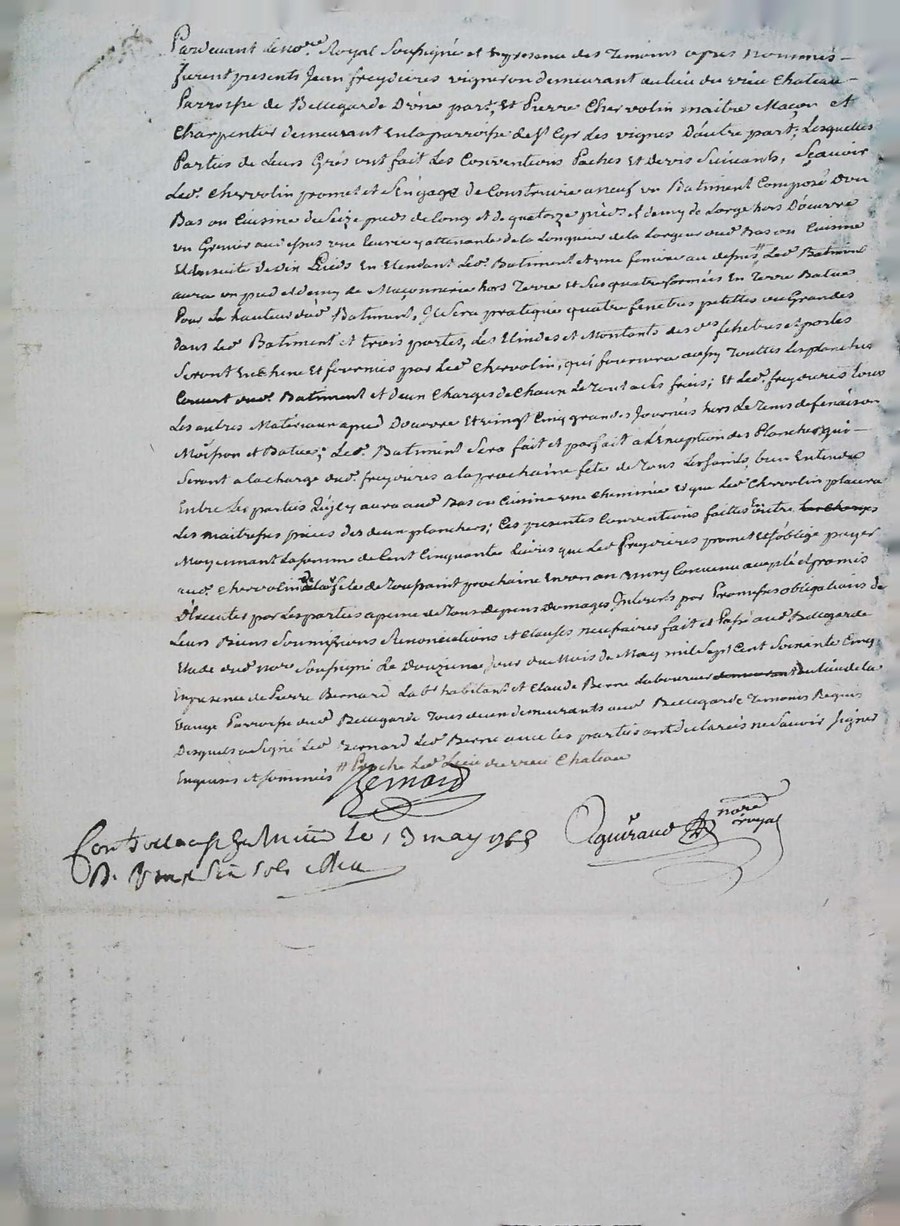 Pardevant le nore Royal Soussigné et en presence des Temoins cy apres nommés
furent presents Jean freydieres vigneron demeurant au lieu du vieu Chateau
Parroisse de Bellegarde D'une part, Et Pierre Chervolin maitre Maçon et
Charpentier demeurant En la parroisse de St Cyr des vignes D'autre part; Lesquelles
Parties de Leurs Grés ont fait Les Conventions Paches et devis Suivants, Sçavoir
Led. Chervolin promet et S'engage de Construire a neuf un Batiment Composé D'un
Bas ou Cuisine de Seize pieds de long et de quatorze pieds et demy de Large hors D'oeuvre
un Grenier au dessus une attenante de la Longueur de la Largeur dud. Bas ou Cuisine
Et Ensuite de En Etendant Led. Batiment et une au depuis # Led. Batiment
aura un pied et demy de Maçonnerie hors Terre et Ses quatre formés En Terre Batue
Pour la hauteur dud. Batiment, Il Sera pratiqué quatre fenetres petittes ou Grandes
Dans Led. Batiment et trois portes, Les et Montants des des fenetres et portes
Seront En chene Et fournies par Led. Chervolin, qui fournira aussy Touttes Les planches
Couvert dud. Batiment et d'eux Charges de Chaux Le Tout a Ses frais; Et Led. freydieres Tous
Les autres Materiaux a pied D'oeuvre Et vingt Cinq grandes Journées hors de Tems de fenaison
Moisson et Batue; Led. Batiment Sera fait et parfait a L'exception des Planchers qui
Seront a la charge dud. freydieres a la prochaine fete de Tous Les Saints, bien Entendu
Entre Les parties qu'il y aura aud. Bas ou Cuisine une cheminée Et que Led. Chervolin placera
Les maitresses pieces des deux planchers; Ces presentes Conventions faittes En outre
Moyennant La somme de Cent Cinquante Livres que Led. freydieres promet Et s'oblige payer
aud. Chervolin de la fete de Toussaint prochaine En un an Ainsy Convenu accepté et promis
D'Executer par Les parties a peine de Tous depens Domages Interests par Promesses obligations de
Leurs Biens Soumissions Renonciations et Clauses necessaires fait et Passé aud. Bellegarde
Etude dud. nore Soussigné Le Douzieme Jour du Mois de May mil Sept Cent Soixante Cinq
En presence de Pierre Bernard habitant et Claude Berne Laboureur du lieu de la
Parroisse dud. Bellegarde Tous deux demeurants aud. Bellegarde Temoins Requis
Desquels a Signé Led. Bernard Led. Berne avec les parties ont declarés ne Scavoir Signer
Enquises et sommés # Proche Led. Lieu du vieu Chateau
Bernard
Aguiraud nore royal
le 13 may 1765